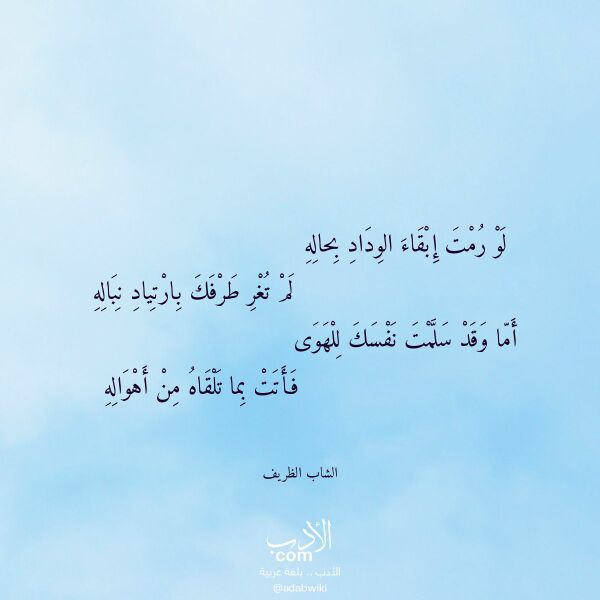 لَوْ رُمْتَ إِبْقَاءَ الوِدَادِ بِحالِهِ
لَمْ تُغْرِ طَرْفَكَ بِارْتِيادِ نِبَالِهِ
أَمّا وَقَدْ سَلَّمْتَ نَفْسَكَ لِلْهَوَى
فَأَتَتْ بِما تَلْقَاهُ مِنْ أَهْوَالِهِ
الشاب الظريف
الأدب
com
الأدب .. بلغة عربية
@adabwiki